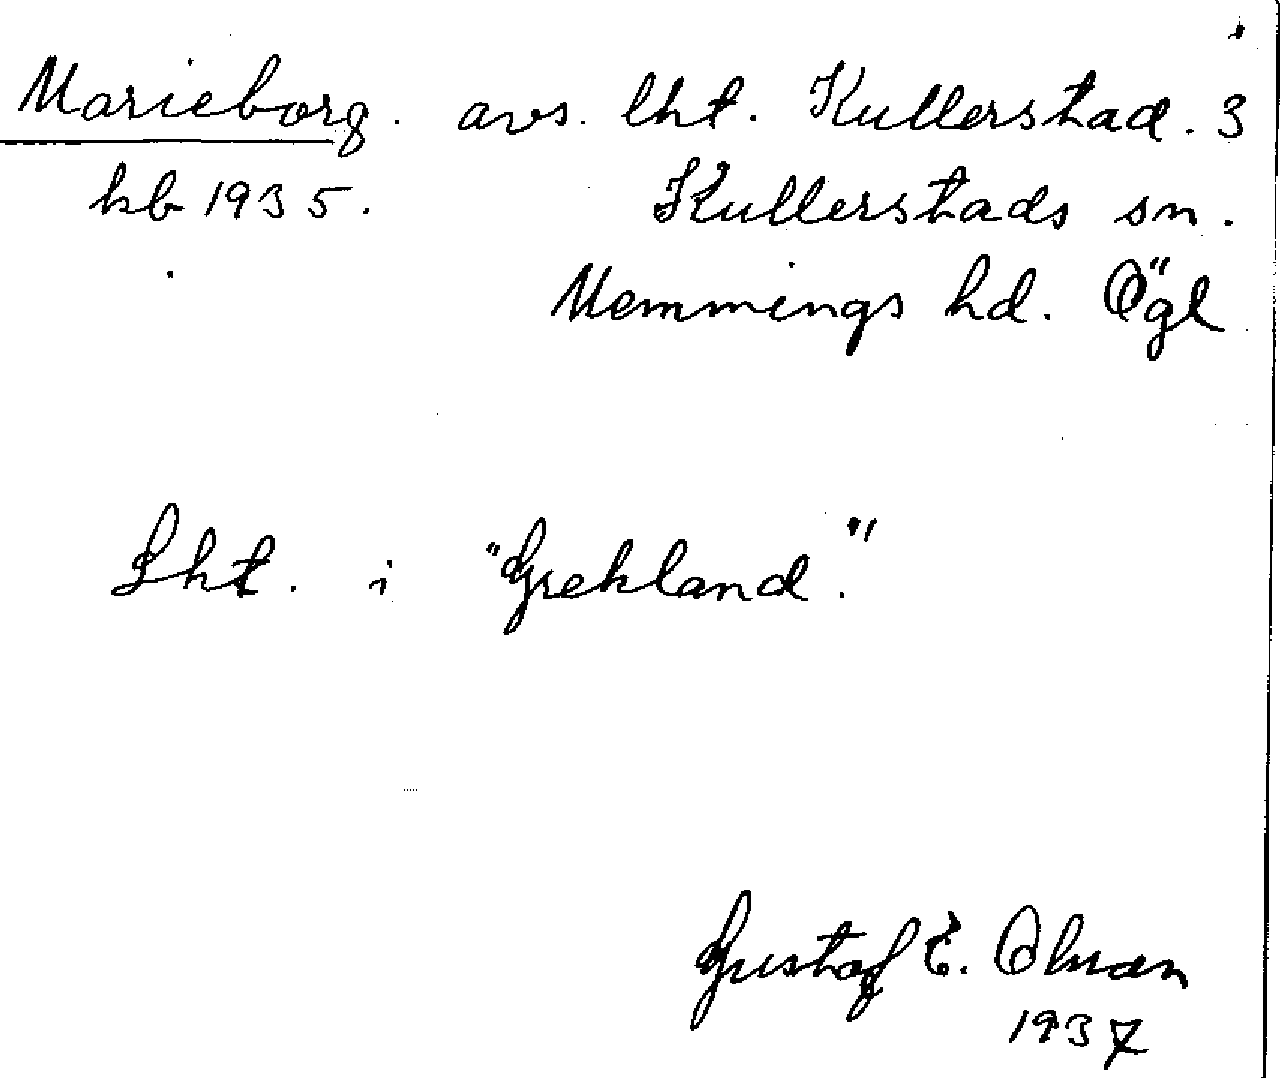 Marieborg. avs. lht. Kullerstad. 3
kb 1935. Kullerstads sn.
Memmings hd. Ögl
Lht. i "Grekland."
Gustaf E. Olman
1937